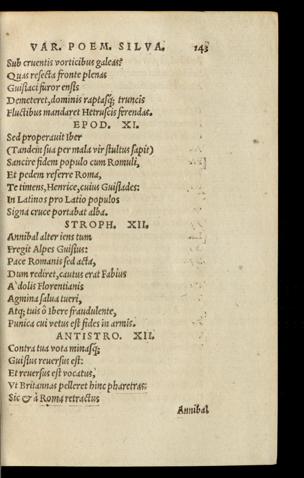 VAR. POEM. SILVA. 143
Sub cruentis vorticibus galeas?
Quas resecta fronte plenas
Guisiaci furor ensis
Demeteret, dominis raptasq; truncis
Fluctibus mandaret Hetruscis ferendas.
EPOD. XI.
Sed properauit Iber
(Tandem sua per mala vir stultus sapit)
Sancire fidem populo cum Romuli,
Et pedem referre Roma,
Te timens, Henrice, cuius Guisiades:
In Latinos pro Latio populos
Signa cruce portabat alba.
STROPH. XII.
Annibal alter iens tum
Fregit Alpes Guisius:
Pace Romanis sed acta,
Dum rediret, cautus erat Fabius
A' dolis Florentianis
Agmina salua tueri,
Atq; tuis ô Ibere fraudulente,
Punica cui vetus est fides in armis.
ANTISTRO. XII.
Contra tua vota minasq;
Guisius reuersus est:
Et reuersus est vocatus,
Vt Britannas pelleret hinc pharetras:
Sic & à Roma retractus
Annibal